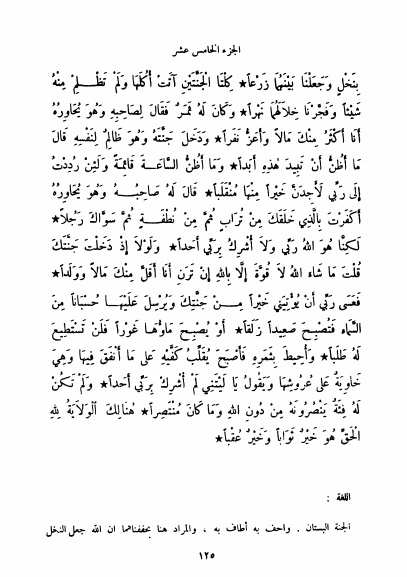 الجزء الخامس عشر
بِنَخْلٍ وَجَعَلْنَا بَيْنَهُمَا زَرْعاً* كِلْتَا الْجَنَّتَيْنِ آتَتْ أُكُلَهَا وَلَمْ تَظْلِمْ مِنْهُ
شَيْئاً وَفَجَّرْنَا خِلَالَهُمَا نَهَراً* وَكَانَ لَهُ ثَمَرٌ فَقَالَ لِصَاحِبِهِ وَهُوَ يُحَاوِرُهُ
أَنَا أَكْثَرُ مِنْكَ مَالاً وَأَعَزُّ نَفَراً* وَدَخَلَ جَنَّتَهُ وَهُوَ ظَالِمٌ لِنَفْسِهِ قَالَ
مَا أَظُنُّ أَنْ تَبِيدَ هَذِهِ أَبَداً* وَمَا أَظُنُّ السَّاعَةَ قَائِمَةً وَلَئِنْ رُدِدْتُ
إِلَى رَبِّي لَأَجِدَنَّ خَيْراً مِنْهَا مُنْقَلَباً* قَالَ لَهُ صَاحِبُهُ وَهُوَ يُحَاوِرُهُ
أَكَفَرْتَ بِالَّذِي خَلَقَكَ مِنْ تُرَابٍ ثُمَّ مِنْ نُطْفَةٍ ثُمَّ سَوَّاكَ رَجُلاً*
لَكِنَّا هُوَ اللهُ رَبِّي وَلَا أُشْرِكُ بِرَبِّي أَحَداً* وَلَوْلَا إِذْ دَخَلْتَ جَنَّتَكَ
قُلْتَ مَا شَاءَ اللهُ لَا قُوَّةَ إِلَّا بِاللهِ إِنْ تَرَنِ أَنَا أَقَلَّ مِنْكَ مَالاً وَوَلَداً*
فَعَسَى رَبِّي أَنْ يُؤْتِيَنِي خَيْراً مِنْ جَنَّتِكَ وَيُرْسِلَ عَلَيْهَا حُسْبَاناً مِنَ
السَّمَاءِ فَتُصْبِحَ صَعِيداً زَلَقاً* أَوْ يُصْبِحَ مَاؤُهَا غَوْراً فَلَنْ تَسْتَطِيعَ
لَهُ طَلَباً* وَأُحِيطَ بِثَمَرِهِ فَأَصْبَحَ يُقَلِّبُ كَفَّيْهِ عَلَى مَا أَنْفَقَ فِيهَا وَهِيَ
خَاوِيَةٌ عَلَى عُرُوشِهَا وَيَقُولُ يَا لَيْتَنِي لَمْ أُشْرِكْ بِرَبِّي أَحَداً* وَلَمْ تَكُنْ
لَهُ فِئَةٌ يَنْصُرُونَهُ مِنْ دُونِ اللهِ وَمَا كَانَ مُنْتَصِراً* هُنَالِكَ الْوَلَايَةُ لِلهِ
الْحَقِّ هُوَ خَيْرٌ ثَوَاباً وَخَيْرٌ عُقْباً*
اللغة :
الجنة البستان . واحف به أطاف به ، والمراد هنا بحففناهما ان الله جعل النخل
١٢٥